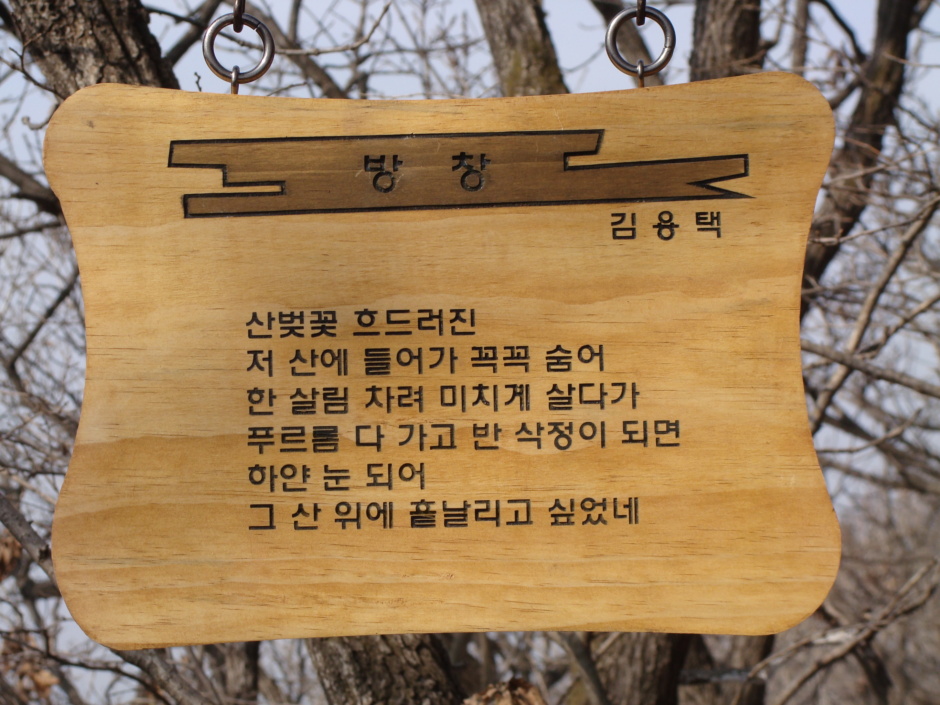 방 창
김 용 택
산벚꽃 흐드러진
저 산에 들어가 꼭꼭 숨어
한 살림 차려 미치게 살다가
푸르름 다 가고 반 삭정이 되면
하얀 눈 되어
그 산 위에 흩날리고 싶었네